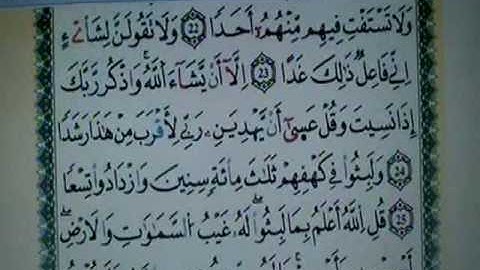 وَلَا تَسْتَفْتِ فِيهِمْ مِنْهُمْ أَحَدًا ﴿22﴾ وَلَا تَقُولَنَّ لِشَاْىْءٍ
إِنِّي فَاعِلٌ ذَٰلِكَ غَدًا ﴿23﴾ إِلَّا أَنْ يَشَاءَ اللَّهُ وَاذْكُرْ رَبَّكَ
إِذَا نَسِيتَ وَقُلْ عَسَىٰ أَنْ يَهْدِيَنِ رَبِّي لِأَقْرَبَ مِنْ هَٰذَا رَشَدًا
﴿24﴾ وَلَبِثُوا فِي كَهْفِهِمْ ثَلَٰثَ مِائَةٍ سِنِينَ وَازْدَادُوا تِسْعًا
﴿25﴾ قُلِ اللَّهُ أَعْلَمُ بِمَا لَبِثُوا لَهُ غَيْبُ السَّمَٰوَٰتِ وَالْأَرْضِ